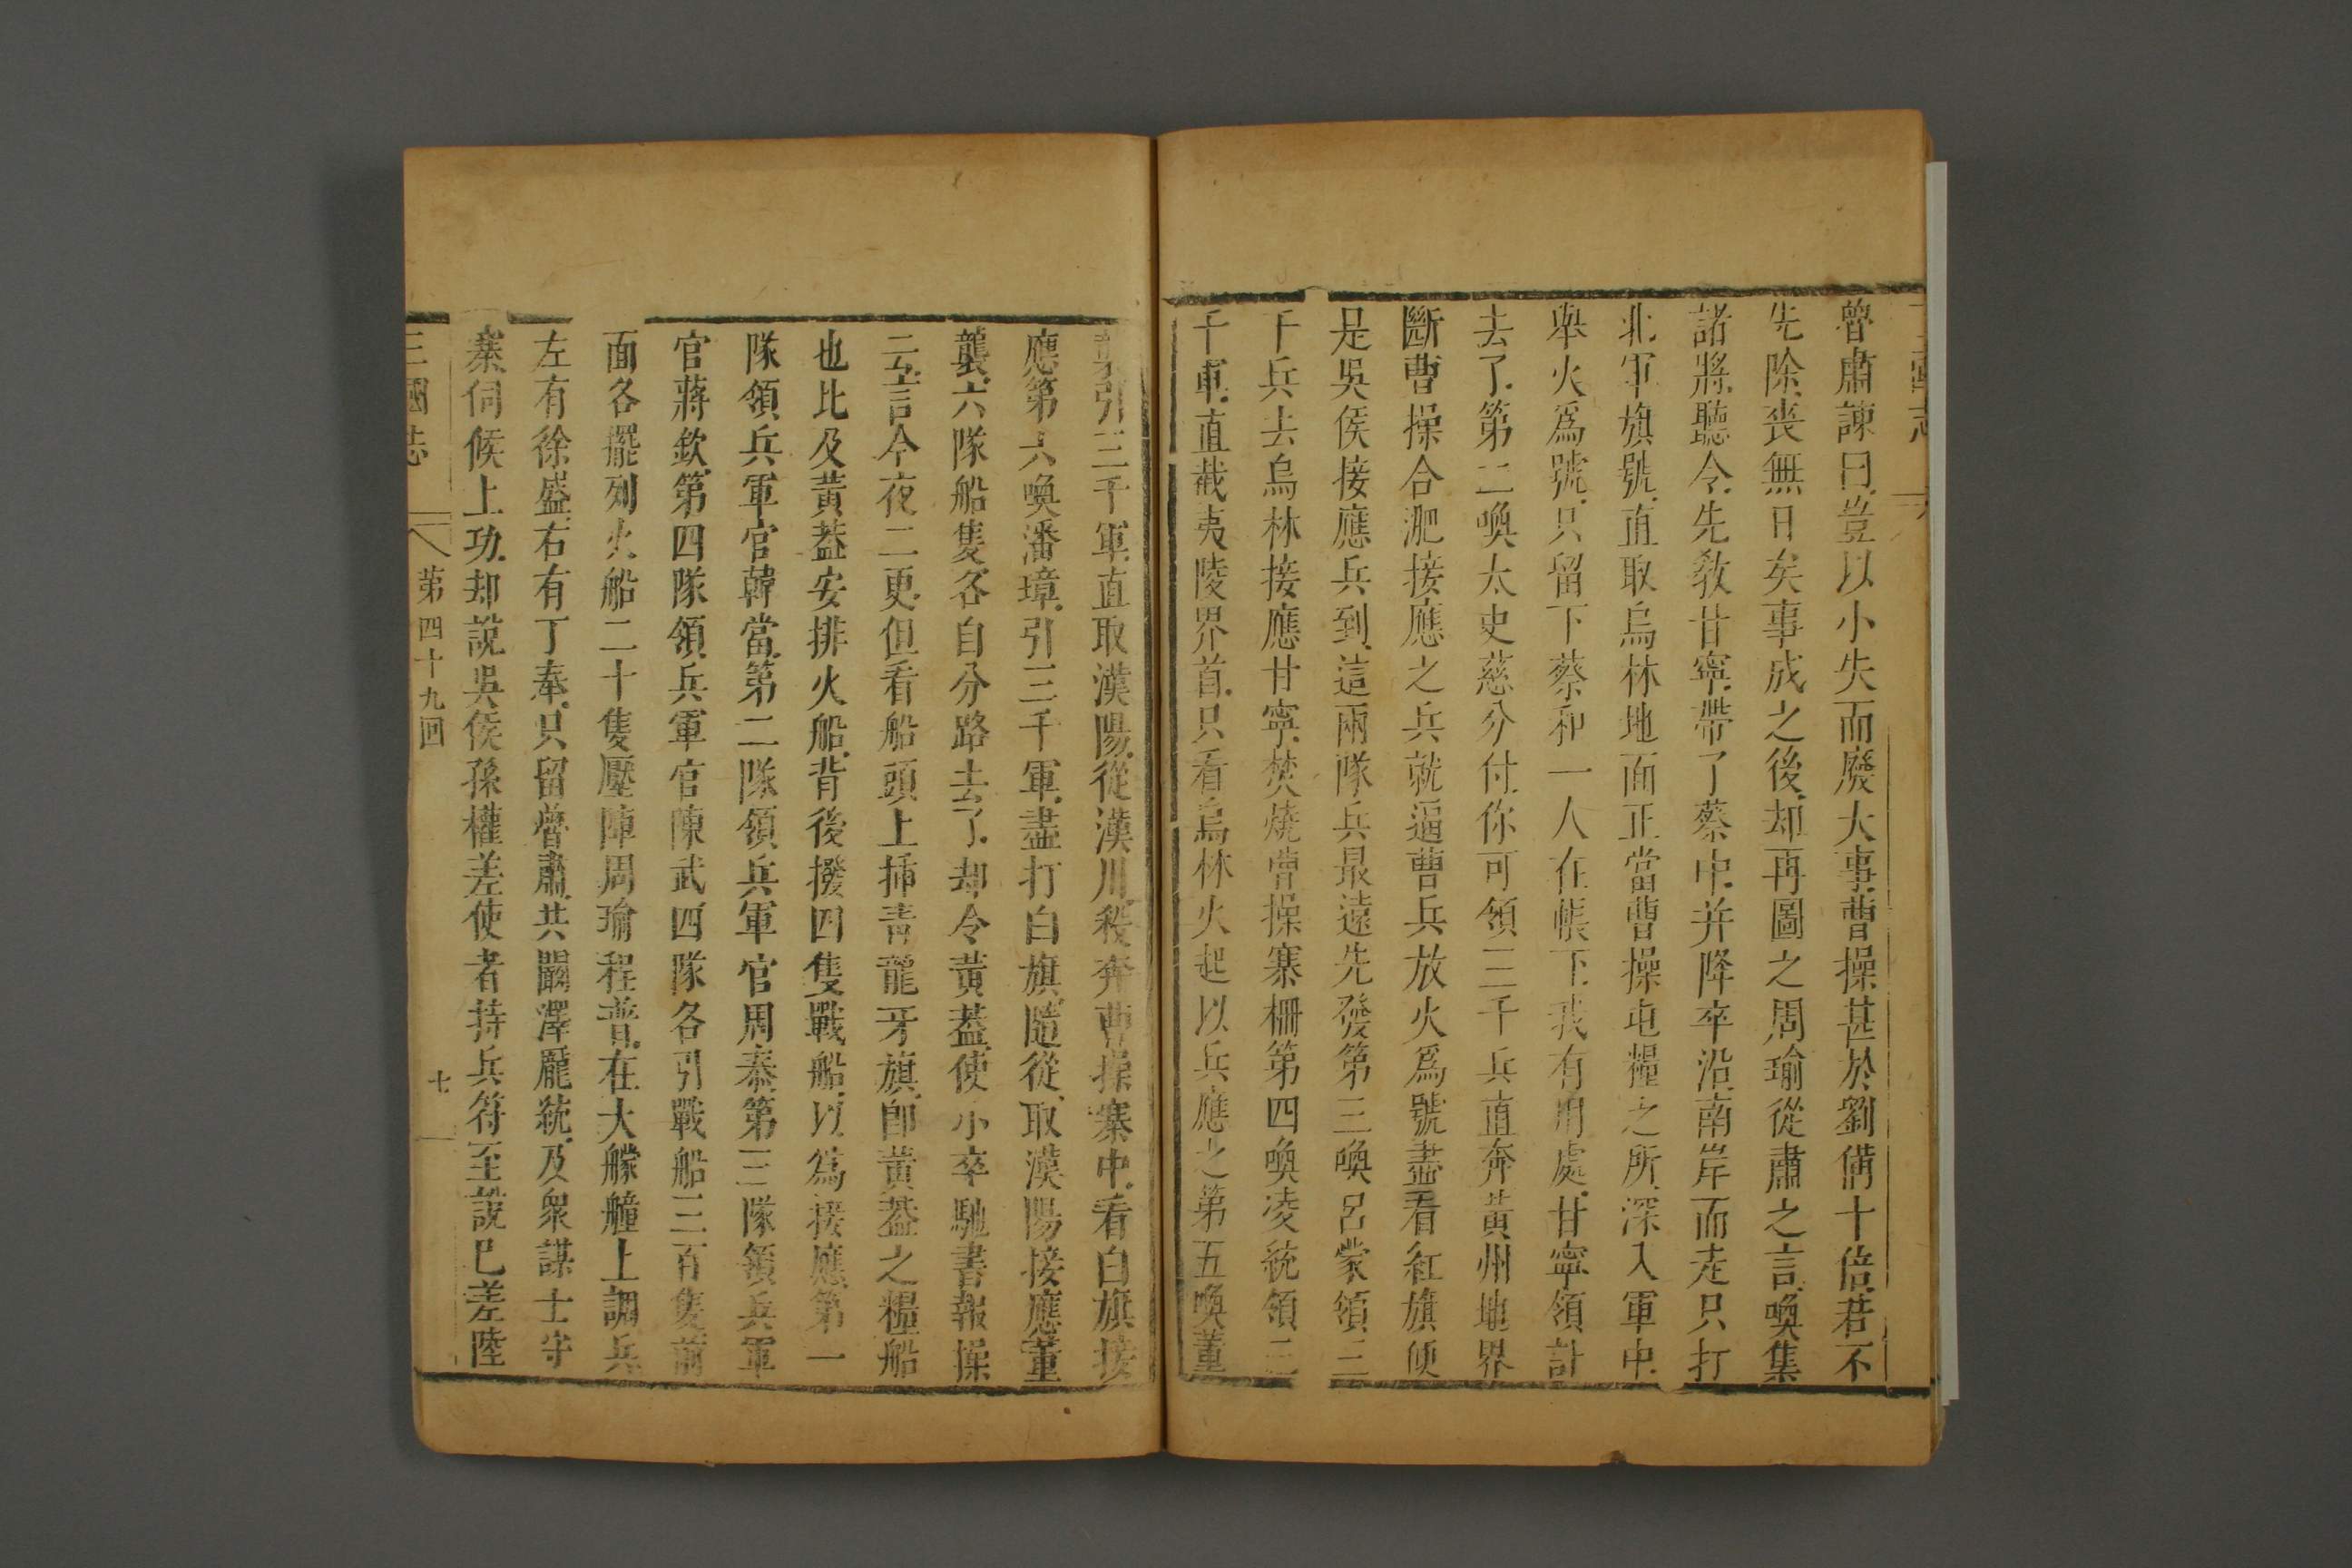 魯肅諫曰豈以小失而廢大事曹操甚於劉備十倍若不
先除喪無日矣事成之後却再圖之周瑜從肅之言喚集
諸將聽令先教甘寧帶了蔡中并降卒沿南岸而走只打
北軍旗號直取烏林地面正當曹操屯糧之所深入軍中
舉火爲號只留下蔡和一人在帳下我有用處甘寧領計
去了第二喚太史慈分付你可領三千兵直奔黃州地界
斷曹操合淝接應之兵就逼曹兵放火爲號盡看紅旗便
是吳侯接應兵到這兩隊兵最遠先發第三喚呂蒙領三
千兵去烏林接應甘寧焚燒曹操寨柵第四喚凌統領三
千軍直截夷陵界首只看烏林火起以兵應之第五喚董
襲引三千軍直取漢陽從漢川殺奔曹操寨中看白旗接
應第六喚潘璋引三千軍盡打白旗隨從取漢陽接應董
襲六隊船隻各自分路去了却令黃蓋使小卒馳書報操
云言今夜二更但看船頭上插青龍牙旗即黃蓋之糧船
也比及黃蓋安排火船背後撥四隻戰船以爲接應第一
隊領兵軍官韓當第二隊領兵軍官周泰第三隊領兵軍
官蔣欽第四隊領兵軍官陳武四隊各引戰船三百隻前
面各擺列火船二十隻壓陣周瑜程普在大艨艟上調兵
左有徐盛右有丁奉只留魯肅共闞澤龐統及衆謀士守
寨伺候上功却說吳侯孫權差使者持兵符至說巳差陸
三國志 第四十九回 七